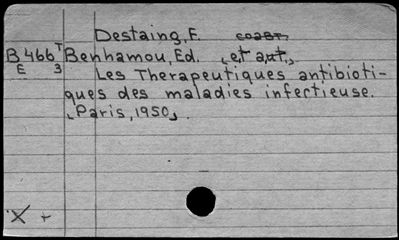 Destaing, F. соавт.
B 466 T Benhamou, Ed. et aut.
E 3 Les Therapeutiques antibioti-
ques des maladies infectieuse.
Paris, 1950
X +